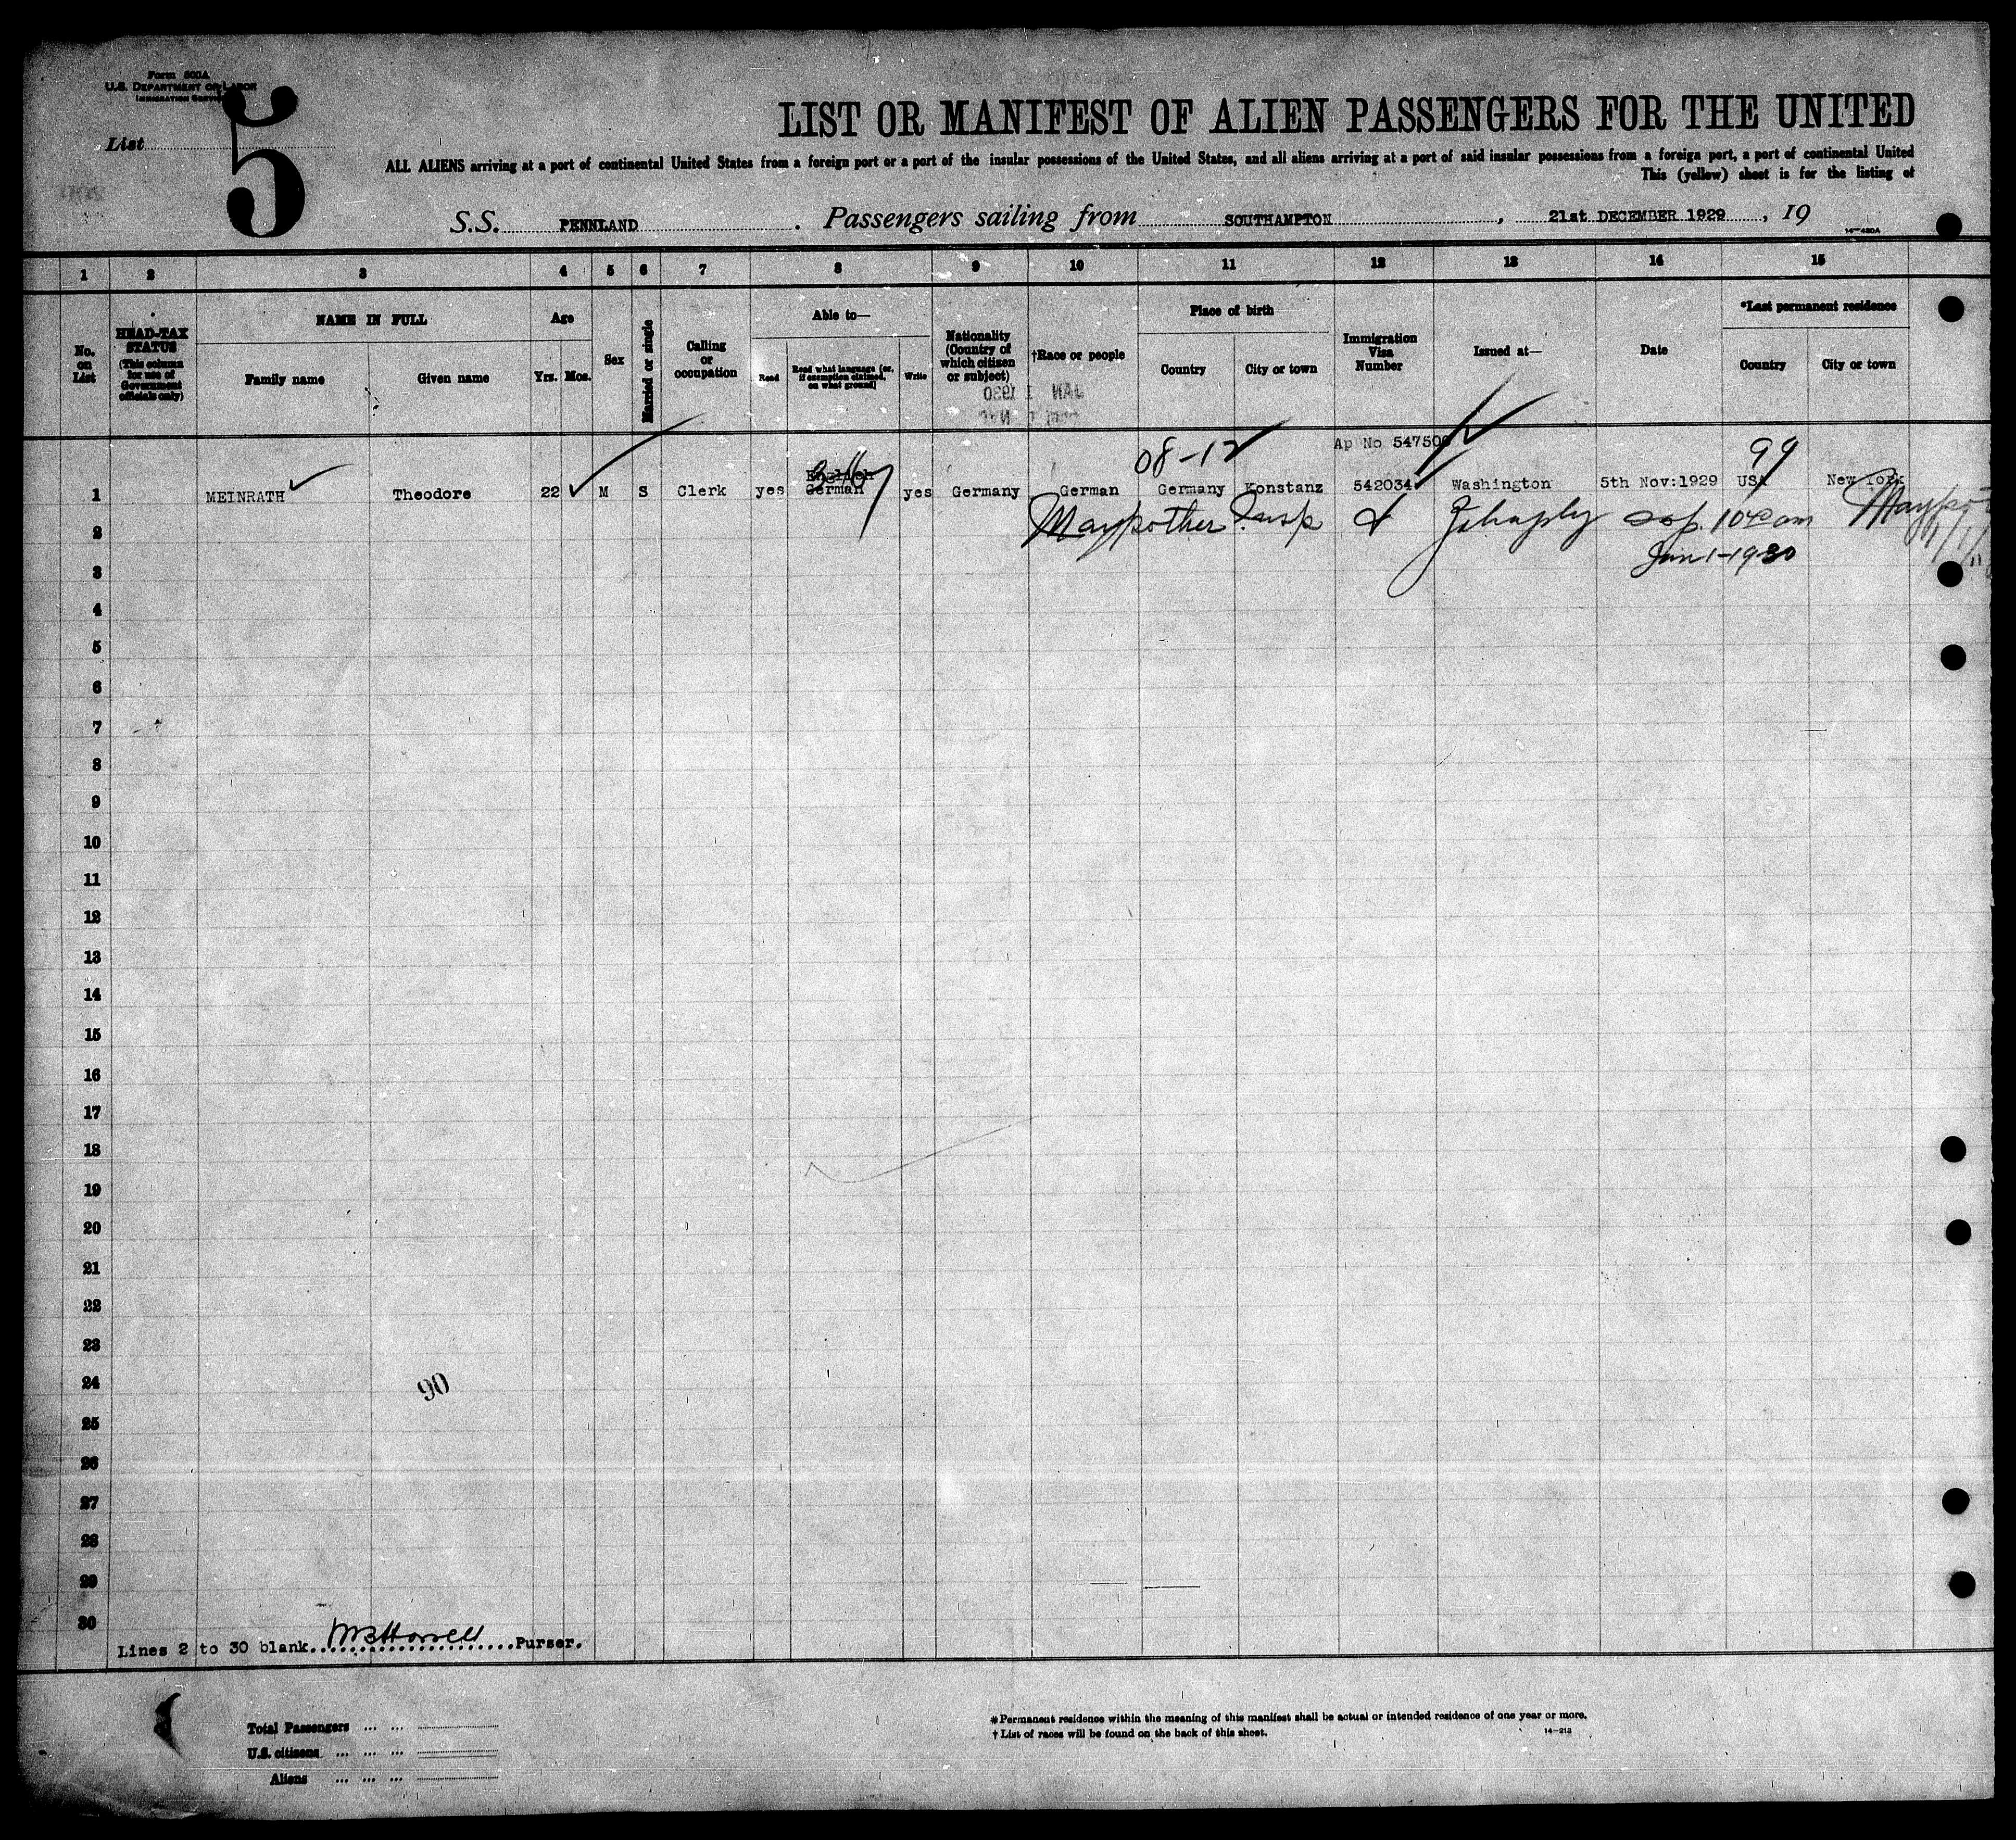 Form 500A
U.S. DEPARTMENT OF LABOR
IMMIGRATION SERVICE
List 5
LIST OR MANIFEST OF ALIEN PASSENGERS FOR THE UNITED
ALL ALIENS arriving at a port of continental United States from a foreign port or a port of the insular possessions of the United States, and all aliens arriving at a port of said insular possessions from a foreign port, a port of continental United
This (yellow) sheet is for the listing of
S.S. PENNLAND. Passengers sailing from SOUTHAMPTON, 21st DECEMBER 1929, 19
14—480A
1 2 3 4 5 6 7 8 9 10 11 12 13 14 15
No. on List
HEAD-TAX STATUS (This column for use of Government officials only)
NAME IN FULL
Family name Given name
Age
Yrs. Mos.
Sex
Married or single
Calling or occupation
Able to—
Read
Read what language [or, if exemption claimed, on what ground]
Write
Nationality (Country of which citizen or subject)
†Race or people
Place of birth
Country City or town
Immigration Visa Number
Issued at—
Date
*Last permanent residence
Country City or town
JAN 1 1930
08-12
Ap No 547506
99
English
1 MEINRATH Theodore 22 M S Clerk yes German yes Germany German Germany Konstanz 542034 Washington 5th Nov:1929 USA New York
Maypother Insp
10 40 am
2
Jan 1-1930
3
4
5
6
7
8
9
10
11
12
13
14
15
16
17
18
19
20
21
22
23
24
90
25
26
27
28
29
30
Lines 2 to 30 blank. Purser.
Total Passengers ... ...
U.S. citizens ... ... ...
Aliens ... ... ...
*Permanent residence within the meaning of this manifest shall be actual or intended residence of one year or more.
†List of races will be found on the back of this sheet.
14—213